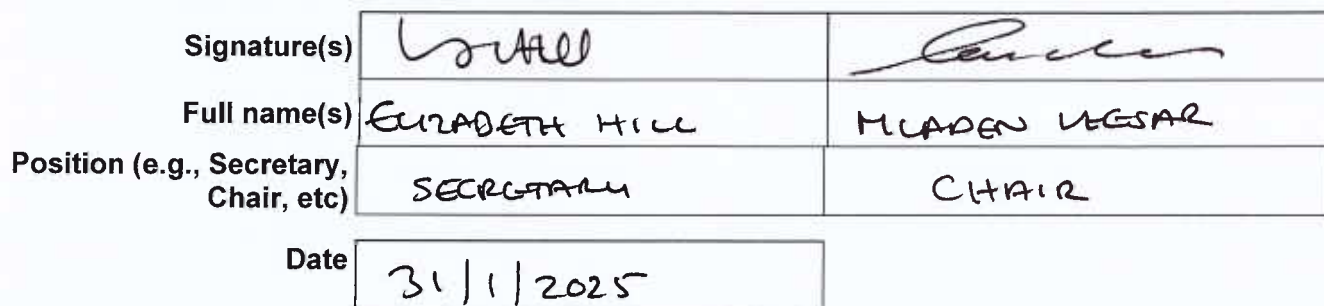 Signature(s)
Full name(s) ELIZABETH HILL MLADEN VEGSAR
Position (e.g., Secretary,
Chair, etc) SECRETARY CHAIR
Date 31/1/2025